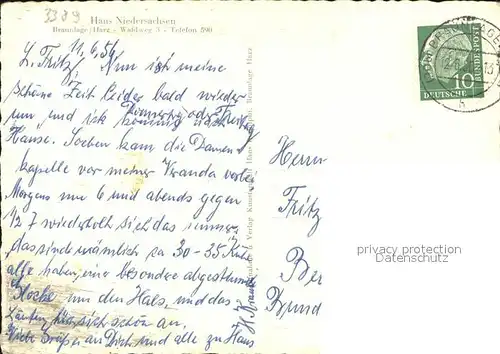 3389
Haus Niedersachsen
Braunlage/Harz - Waldweg 5 - Telefon 590
11.6.56
L. Fritz! Nun ist meine
schöne Zeit leider bald wieder
um und ich komme Donnerstag oder Freitag nach
Hause. Soeben kam die Damen-
kapelle vor meiner Veranda vorbei
Morgens um 6 und abends gegen
1/2 7 wiederholt sich das immer,
das sind nämlich ca 30-35 Kühe
alle haben eine besondere abgestimmte
Glocke um den Hals und das
Läuten hört sich schön an.
Viele Grüße an Dich und alle zu Haus
Verlag
Braunlage Harz
BRAUNLAGE
10
DEUTSCHE
BUNDESPOST
Herrn
Fritz
privacy protection